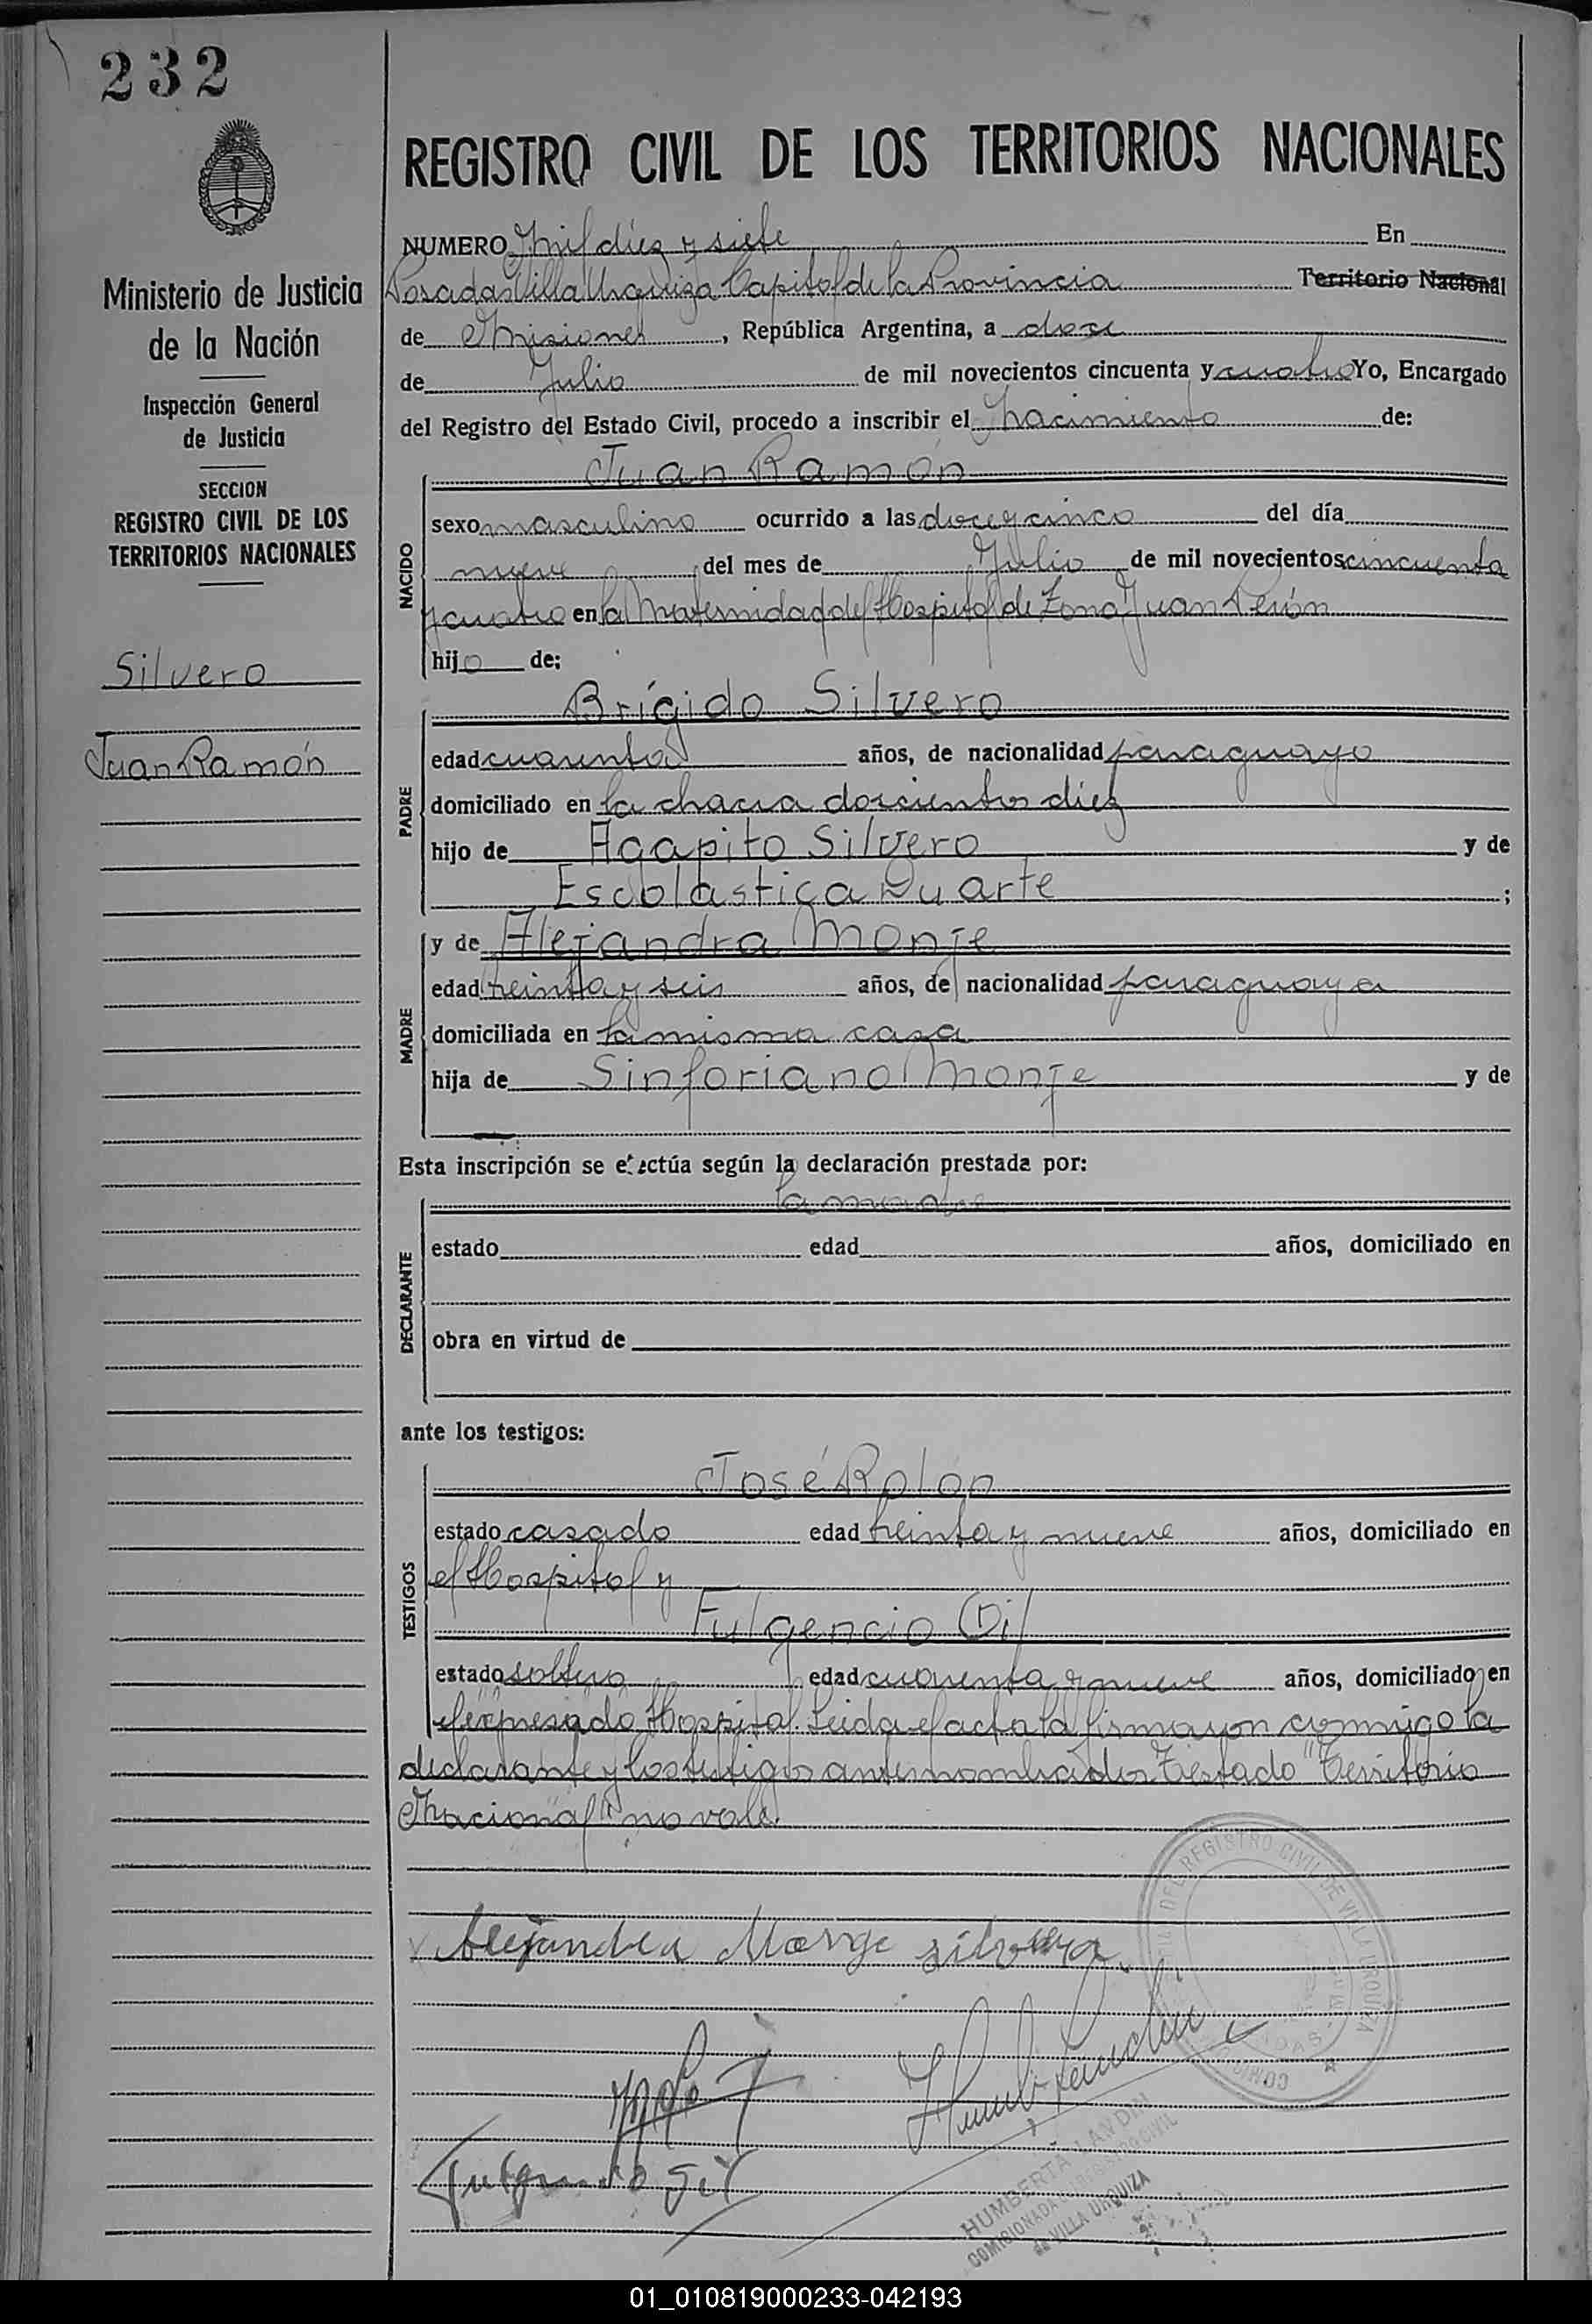 232
Ministerio de Justicia
de la Nación
Inspección General
de Justicia
SECCION
REGISTRO CIVIL DE LOS
TERRITORIOS NACIONALES
Silvero
Juan Ramón
REGISTRO CIVIL DE LOS TERRITORIOS NACIONALES
NUMERO mil diez y siete En
Posadas Villa Urquiza Capital de la Provincia Territorio Nacional
de Misiones, República Argentina, a doce
de Julio de mil novecientos cincuenta y cuatro Yo, Encargado
del Registro del Estado Civil, procedo a inscribir el nacimiento de:
Juan Ramón
NACIDO
sexo masculino ocurrido a las doce y cinco del día
nueve del mes de Julio de mil novecientos cincuenta
y cuatro en la Maternidad del Hospital de Zona Juan Perón
hijo de:
Brígido Silvero
PADRE
edad cuarenta años, de nacionalidad paraguayo
domiciliado en la chacra doscientos diez
hijo de Agapito Silvero y de
Escolástica Duarte;
MADRE
y de Alejandra Monje
edad treinta y seis años, de nacionalidad paraguaya
domiciliada en la misma casa
hija de Sinforiano Monje y de
Esta inscripción se efectúa según la declaración prestada por:
la madre
DECLARANTE
estado edad años, domiciliado en
obra en virtud de
ante los testigos:
José Rolon
TESTIGOS
estado casado edad treinta y nueve años, domiciliado en
el Hospital y
Fulgencio Gil
estado soltero edad cuarenta y nueve años, domiciliado en
el expresado Hospital. Leida el acta la firmaron conmigo la
declarante y los testigos antes nombrados Testado "Territorio
Nacional" no vale.
Alejandra Monge
Fulgencio Gil
HUMBERTA LANDIN
COMISIONADA DEL REGISTRO CIVIL
de VILLA URQUIZA
DEL REGISTRO CIVIL DE VILLA URQUIZA
01_010819000233-042193